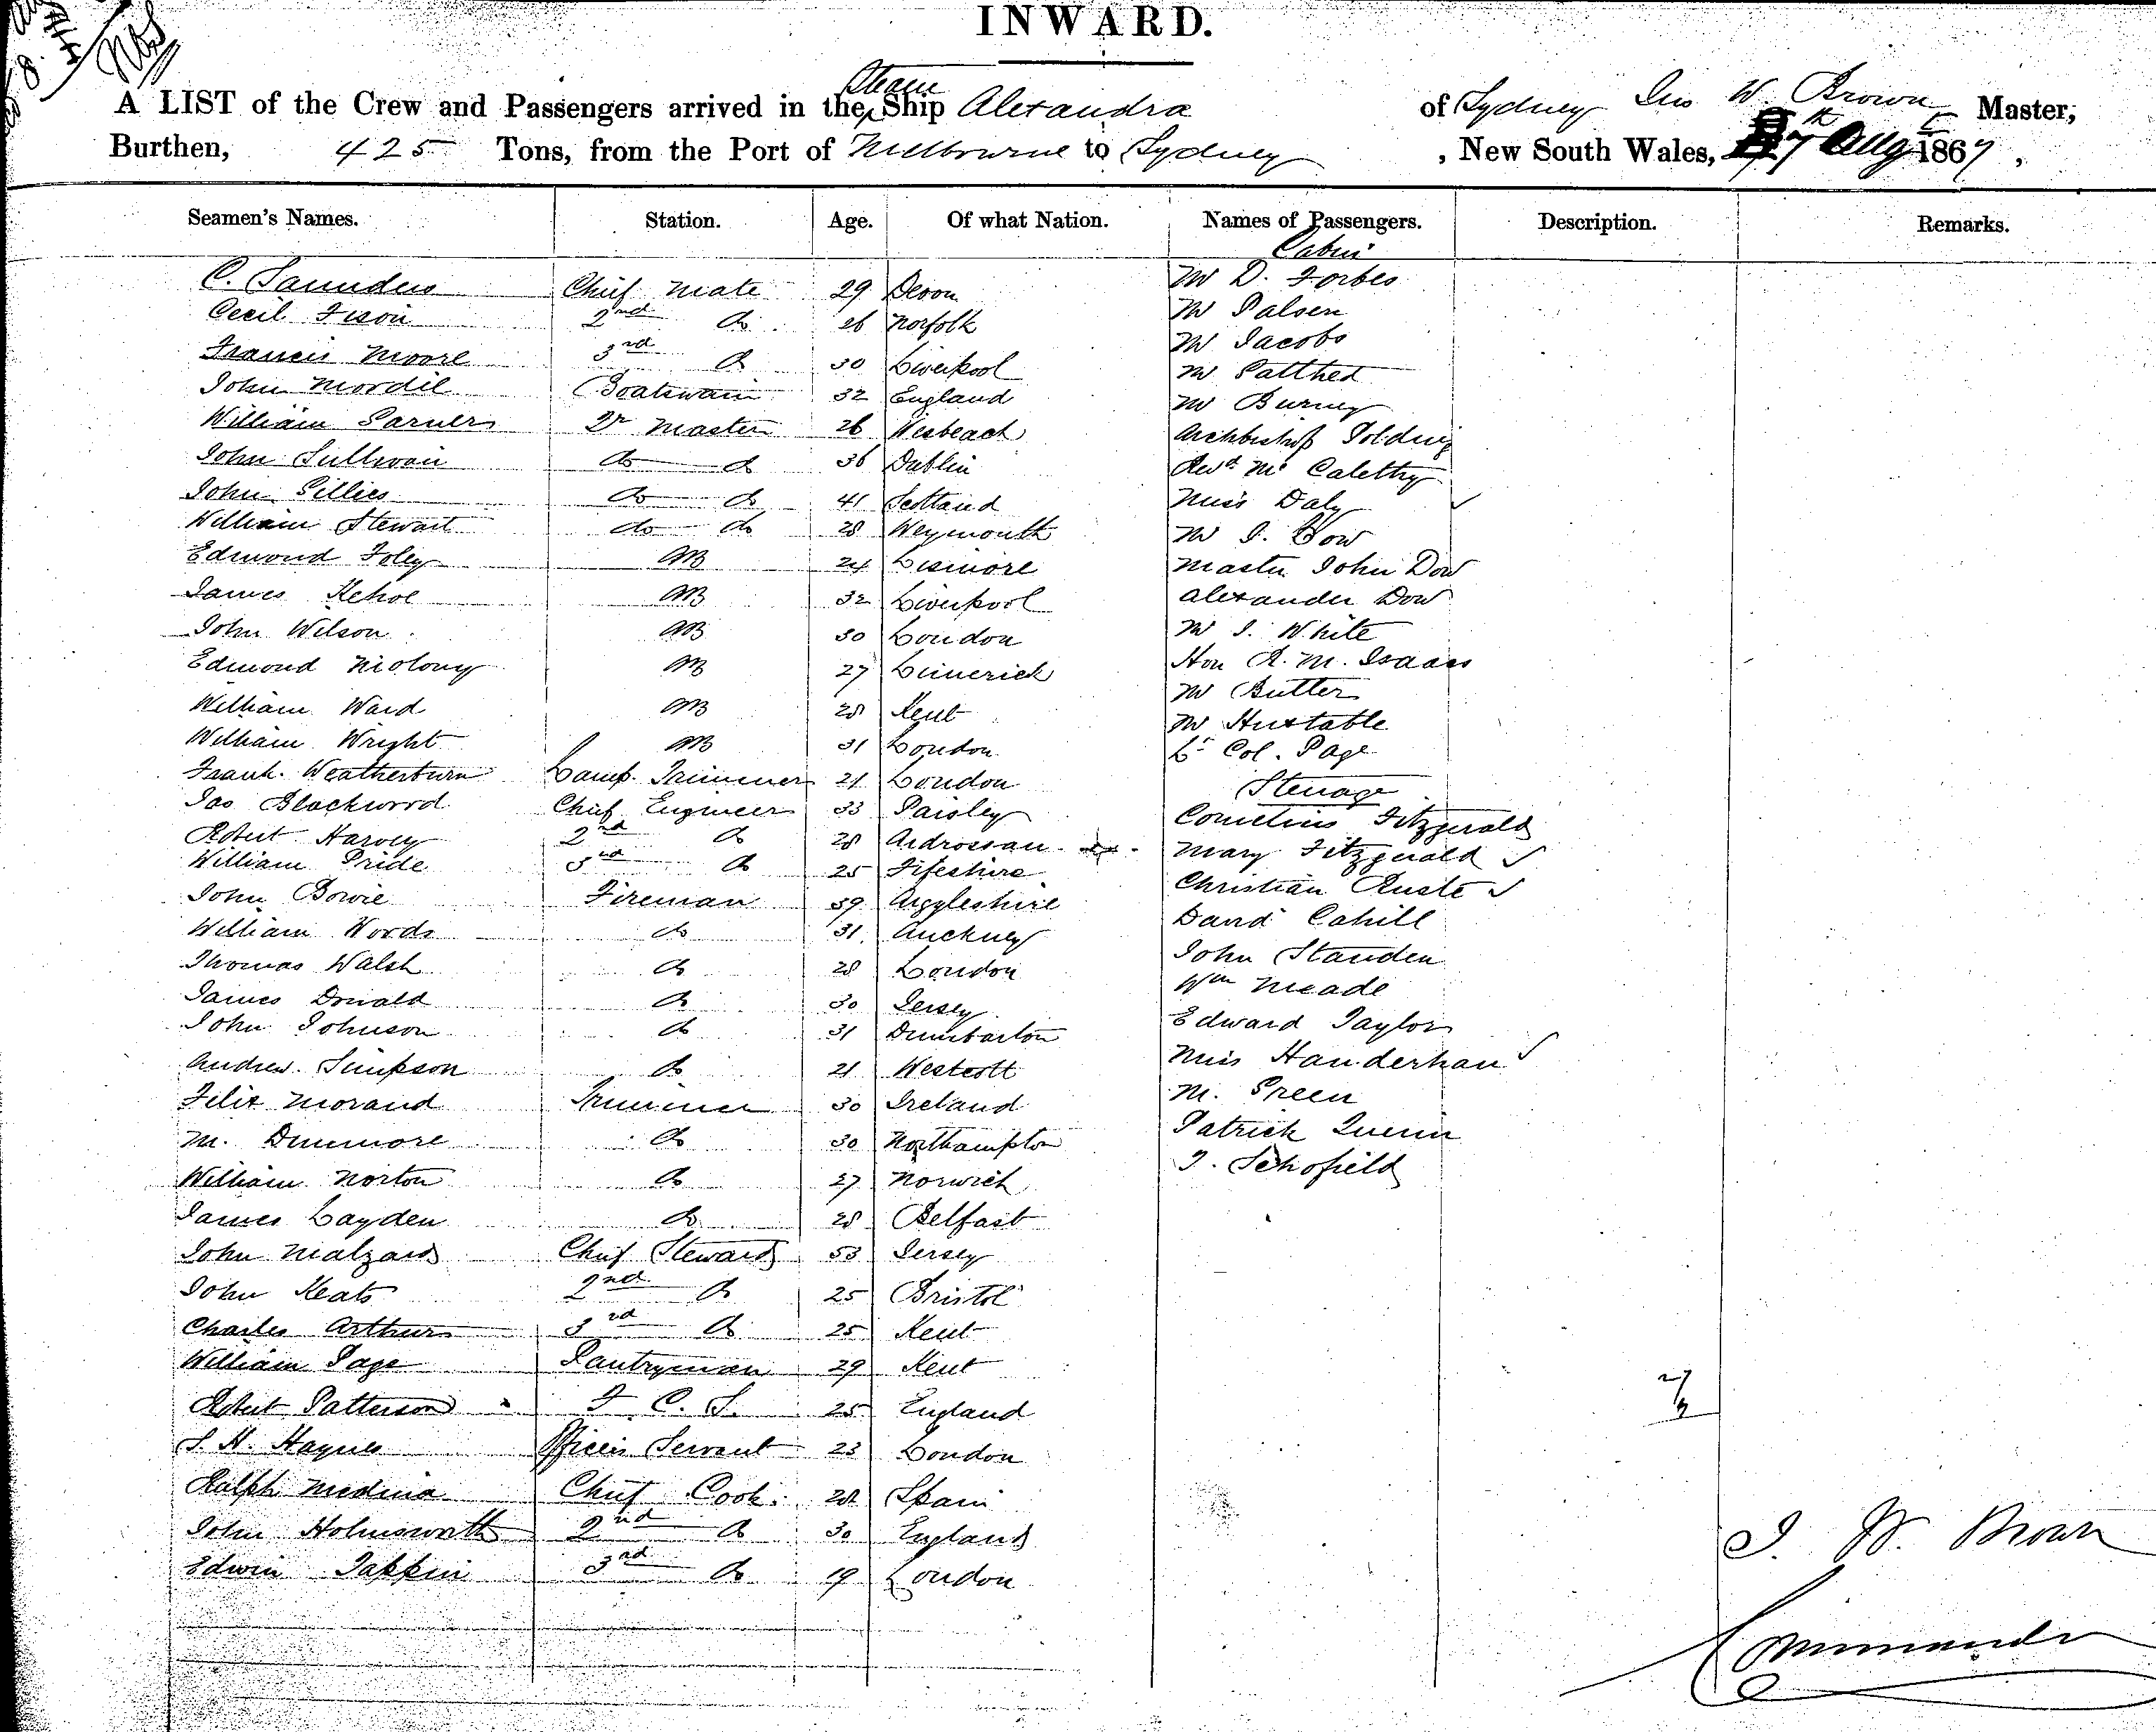 INWARD.
A LIST of the Crew and Passengers arrived in the Steam Ship Alexandra of Sydney W. Brown Master,
Burthen, 425 Tons, from the Port of Melbourne to Sydney, New South Wales, 7 Augt 1867,
Seamen's Names. Station. Age. Of what Nation. Names of Passengers. Description. Remarks.
Cabin
C. Saunders Chief Mate 29 Devon Mr D. Forbes
Cecil Fison 2nd do 26 Norfolk Mr Palsen
Francis Moore 3rd do 30 Liverpool Mr Jacobs
John Mordil Boatswain 32 England Mr
William Qr Master 26 Wesbeach Mr Burney
John Sullivan do do 36 Dublin Archbishop Polding
John Gillies do do 41 Scotland Revd Mr
William Stewart do do 28 Weymouth Miss Daly
Edmond Foley AB 24 Lismore Mr J. Dow
James Kehoe AB 32 Liverpool Master John Dow
John Wilson AB 30 London Alexander Dow
Edmond Molony AB 27 Limerick Mr J. White
William Ward AB 28 Kent Hon R. M. Isaacs
William Wright AB 31 London Mr Butter
Frank Weatherburn Lamp Trimmer 21 London Mr Huxtable
Jas Blackwood Chief Engineer 33 Paisley Lt Col. Page
Steerage
Robert Harvey 2nd do 28 Ardrossan Cornelius Fitzgerald
William Pride 3rd do 25 Fifeshire Mary Fitzgerald
John Bowie Fireman 39 Argyleshire Christian
William Words do 31 David Cahill
Thomas Walsh do 28 London John Standen
James Donald do 30 Jersey Wm Meade
John Johnson do 31 Dumbarton Edward Taylor
Andrew Simpson do 21 Miss Handerhan
Felix Morand Trimmer 30 Ireland M. Green
M. Dunmore do 30 Northampton Patrick Quinn
William Norton do 27 Norwich J. Schofield
James Layden do 28 Belfast
John Malzard Chief Steward 53 Jersey
John Keats 2nd do 25 Bristol
Charles Arthur 3rd do 25 Kent
William Page Pantryman 29 Kent
Robert Patterson F. C. S. 25 England
S. H. Haynes Officers Servant 23 London
Ralph Medina Chief Cook 28 Spain
John Holmsworth 2nd do 30 England
Edwin Tappin 3rd do 19 London
J. W. Brown
Commander